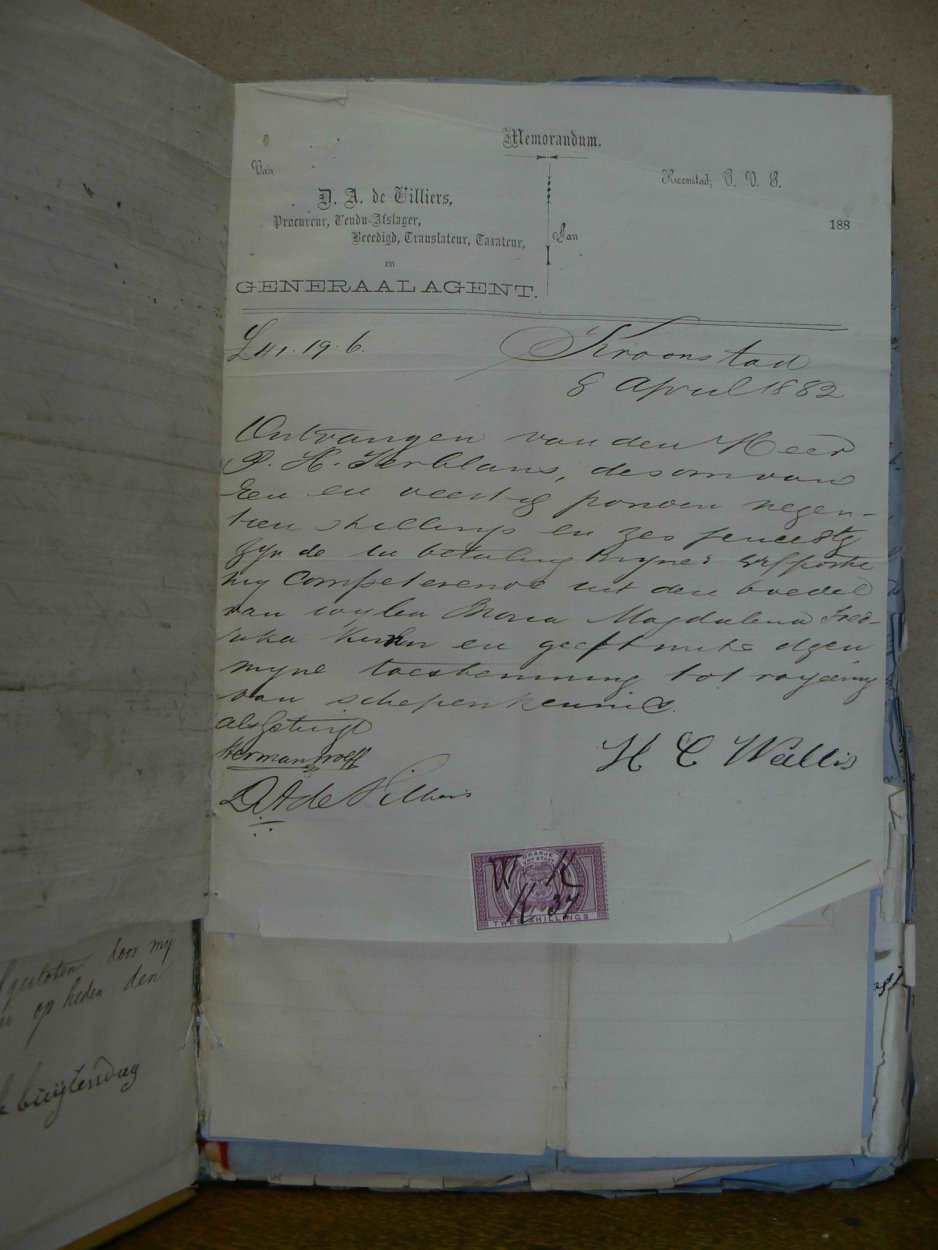 Memorandum.
Van
Kroonstad, O. V. S.
D. A. de Villiers,
Procureur, Vendu-Afslager,
188
Beeedigd, Translateur, Taxateur,
Aan
en
GENERAAL AGENT.
£41.19.6.
Kroonstad
8 April 1882
Ontvangen van den Heer
P. H. Terblans, de som van
Een en veertig ponden negen-
tien shellings en zes pence stg
zyn de in betaling myne's erfportie
my Competerende uit den boedel
van wylen Maria Magdalena Fred-
rika en geeft mits dezen
myne toestemming tot royering
van schepenkennis.
als getuige
Herman Wolff
H C Wallis
D A de Villiers
ORANJE
VRY STAAT
W K
K 37
TWEE SHILLINGS
gesloten door my
op heden den
buijtendag